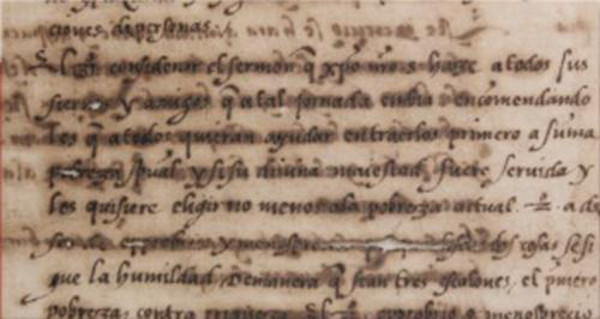 ciones de personas.
El 3º considerar el sermon q̃ xpo nr̃o s. haze a todos sus
sieruos y amigos q̃ a tal jornada enbia encomendando
les q̃ a todos quieran ayudar en traerlos primero a suma
pobreza spũal y si su diuina maiestad fuere seruida y
les quisiere eligir no menos a la pobreza actual. 2º a de
seo de opprobrios y menosprecios destas dos cosas se si
gue la humildad de manera q̃ sean tres escalones, el primero
pobreza contra riqueza el 2º opprobrio o menosprecio